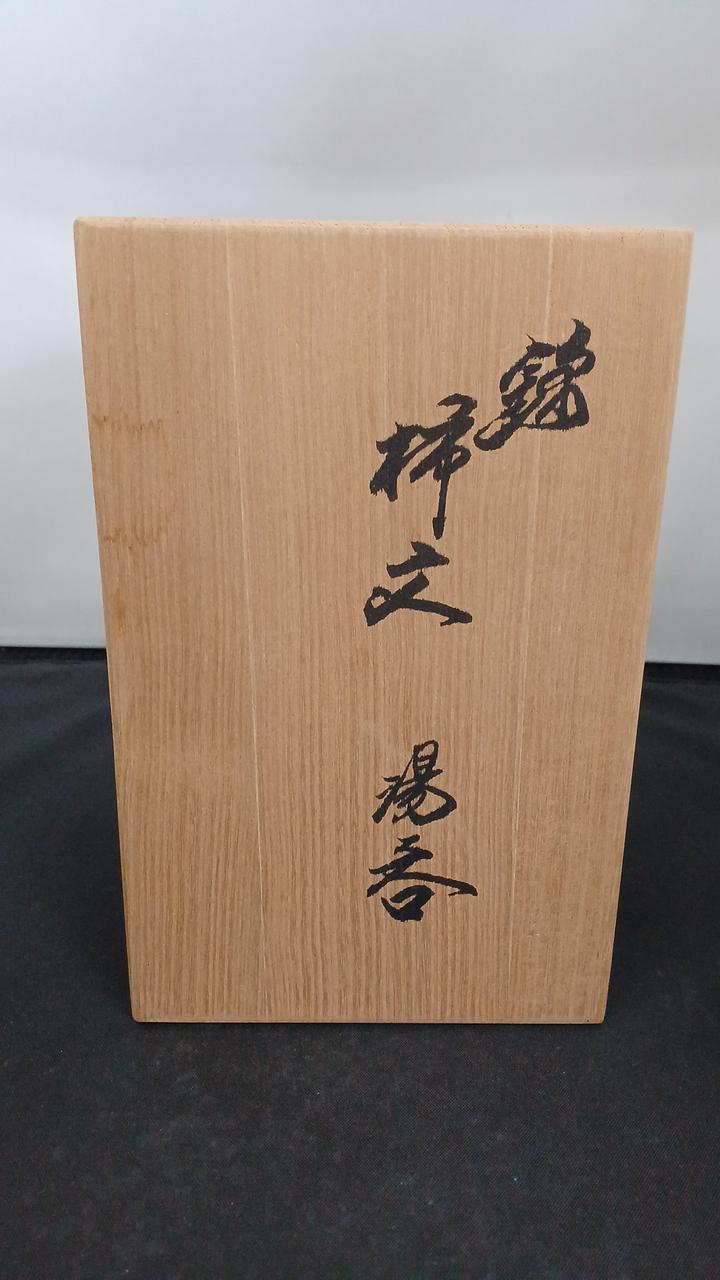 柿文 湯呑